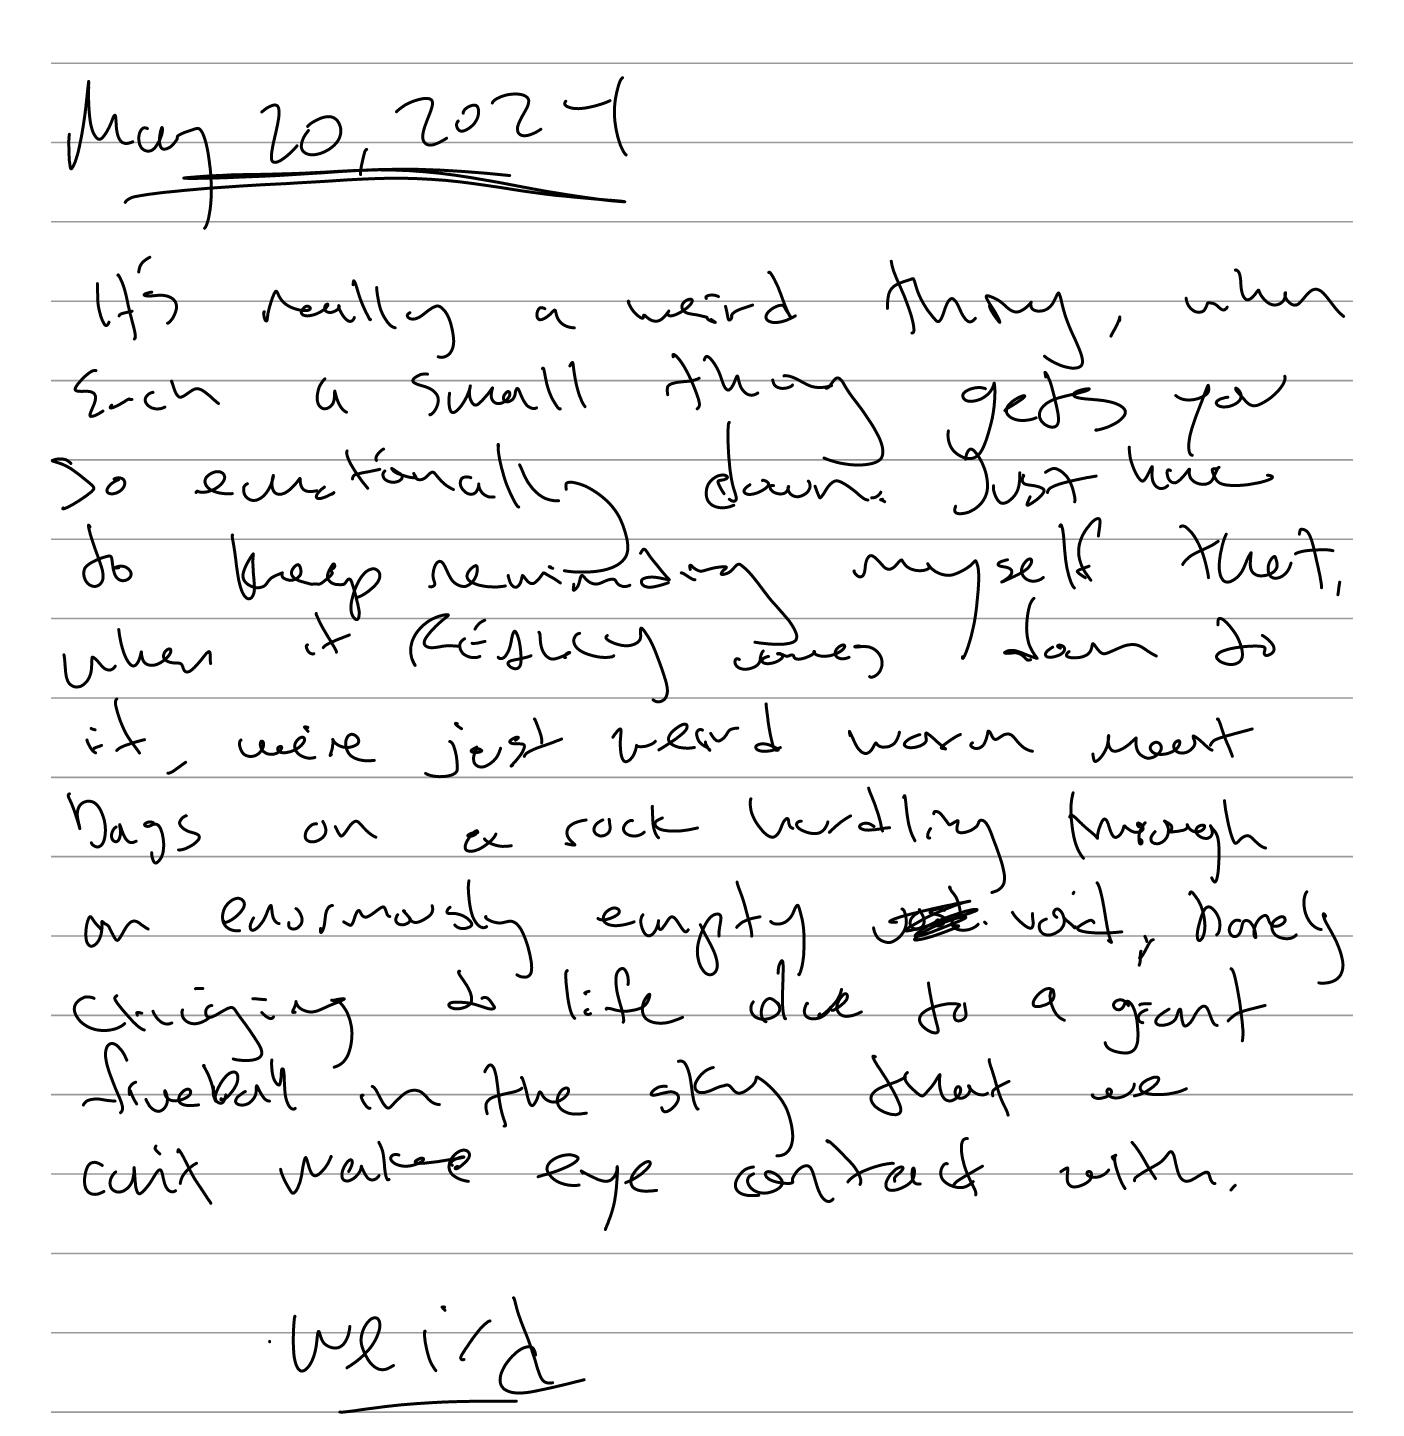 May 20, 2024
It's really a weird thing, when
such a small thing gets you
so emotionally down. Just have
to keep reminding myself that,
when it REALLY comes down to
it, we're just weird warm meat
bags on a rock hurdling through
an enormously empty void, barely
clinging to life due to a giant
fireball in the sky that we
can't make eye contact with.
weird